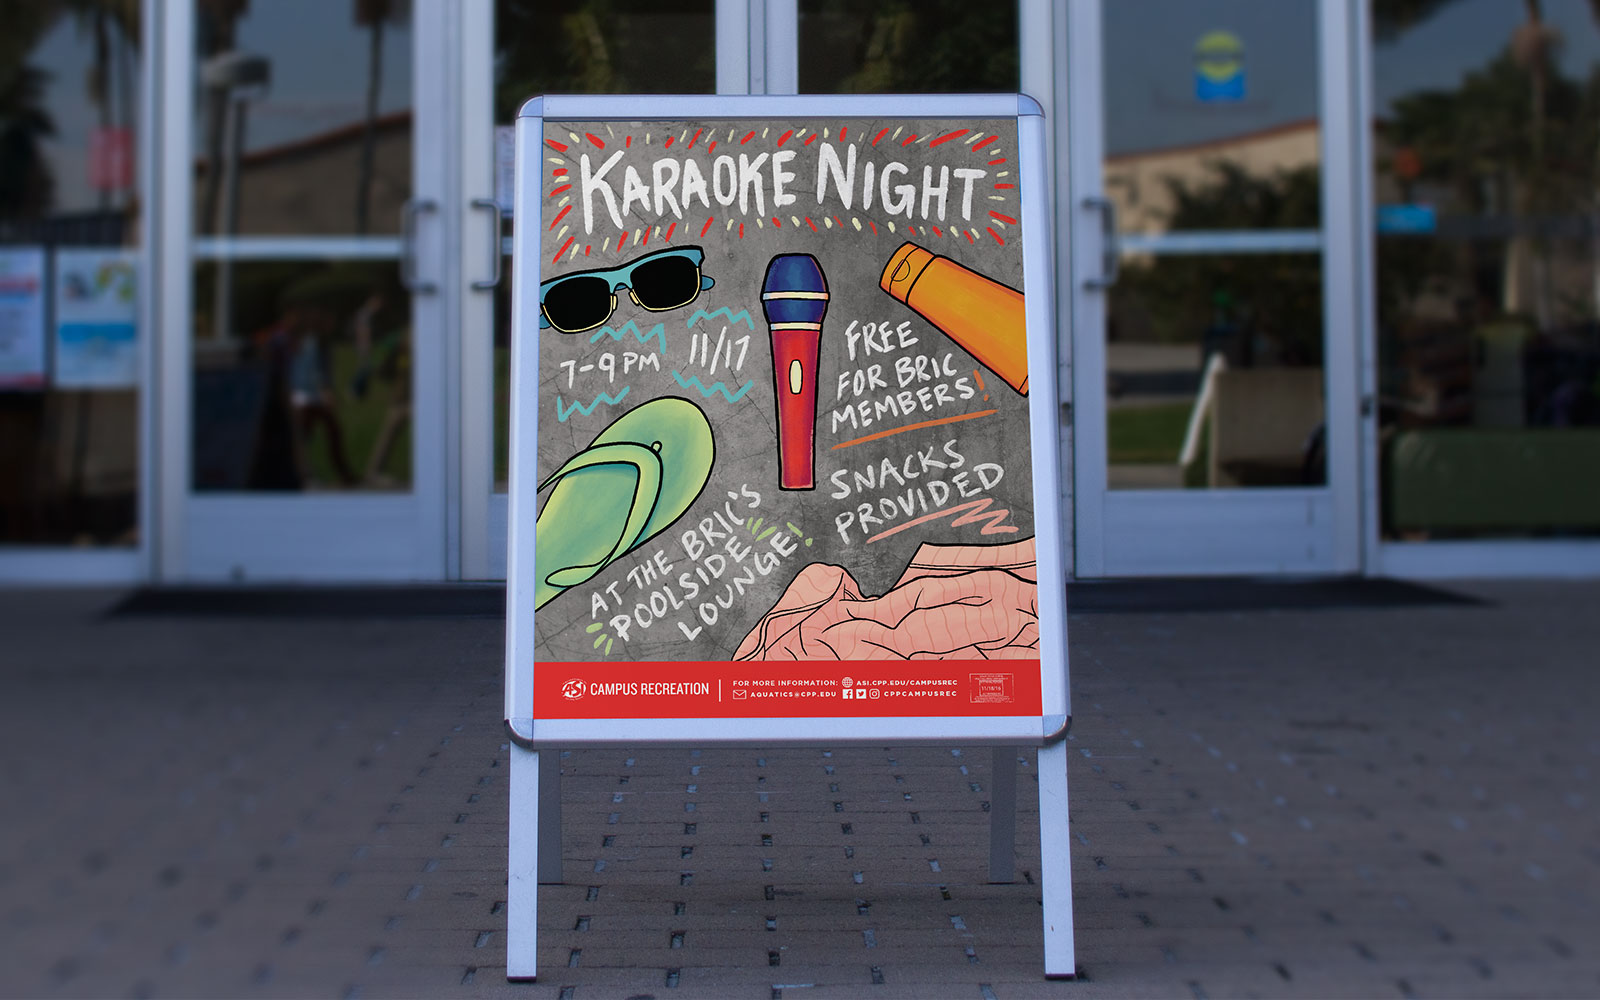 KARAOKE NIGHT
7-9PM
11/17
FREE
FOR BRIC
MEMBERS!
SNACKS
PROVIDED
AT THE BRIC'S
POOLSIDE
LOUNGE!
ASI CAMPUS RECREATION
FOR MORE INFORMATION: ASI.CPP.EDU/CAMPUSREC
AQUATICS@CPP.EDU CPPCAMPUSREC